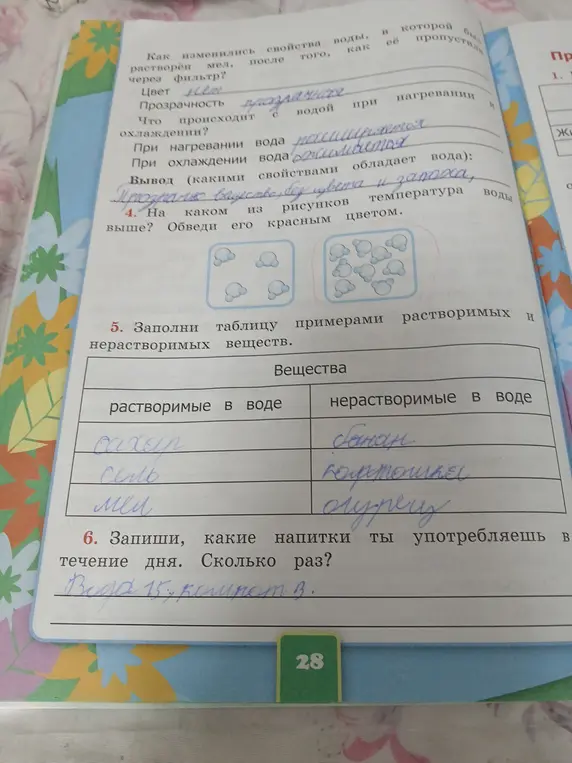 Как изменились свойства воды, в которой был
растворён мел, после того, как её пропустили
через фильтр?
Цвет нет
Прозрачность прозрачная
Что происходит с водой при нагревании и
охлаждении?
При нагревании вода расширяется
При охлаждении вода сжимается
Вывод (какими свойствами обладает вода):
вещество, без цвета и запаха,
4. На каком из рисунков температура воды
выше? Обведи его красным цветом.
5. Заполни таблицу примерами растворимых и
нерастворимых веществ.
Вещества
растворимые в воде нерастворимые в воде
сахар банан
соль картошка
мел огурец
6. Запиши, какие напитки ты употребляешь в
течение дня. Сколько раз?
Вода 15, компот 3.
28
Пр
1.
Жи